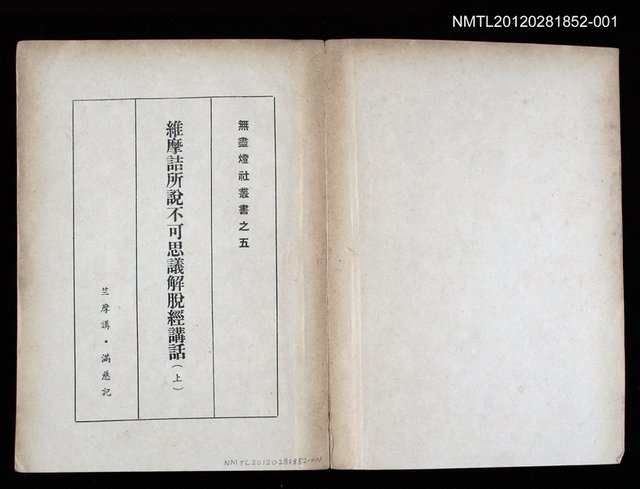 NMTL20120281852-001
無盡燈社叢書之五
維摩詰所說不可思議解脫經講話(上)
竺摩講・滿慈記
NMTL20120281852-001